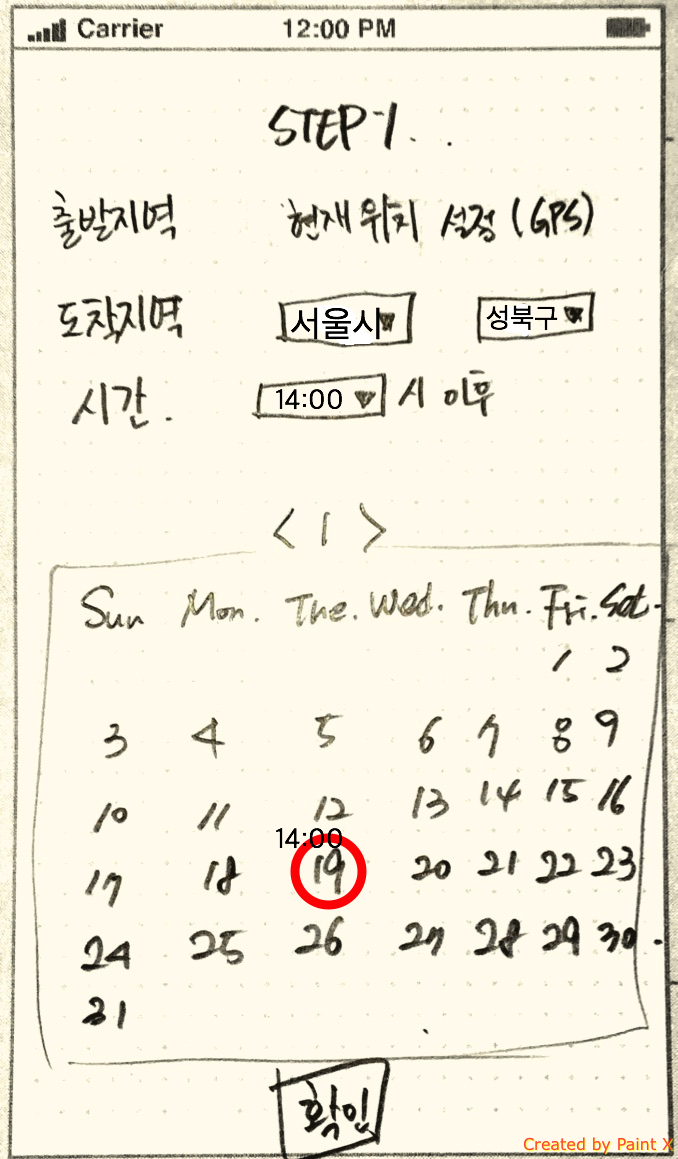 Carrier 12:00 PM
STEP-1. .
출발지역 현재위치 설정 (GPS)
도착지역 서울시 성북구
시간. 14:00 시 이후
< 1 >
Sun Mon. Tue. Wed. Thu. Fri. Sat.
1 2
3 4 5 6 7 8 9
10 11 12 13 14 15 16
14:00
17 18 19 20 21 22 23
24 25 26 27 28 29 30.
31
확인
Created by Paint X